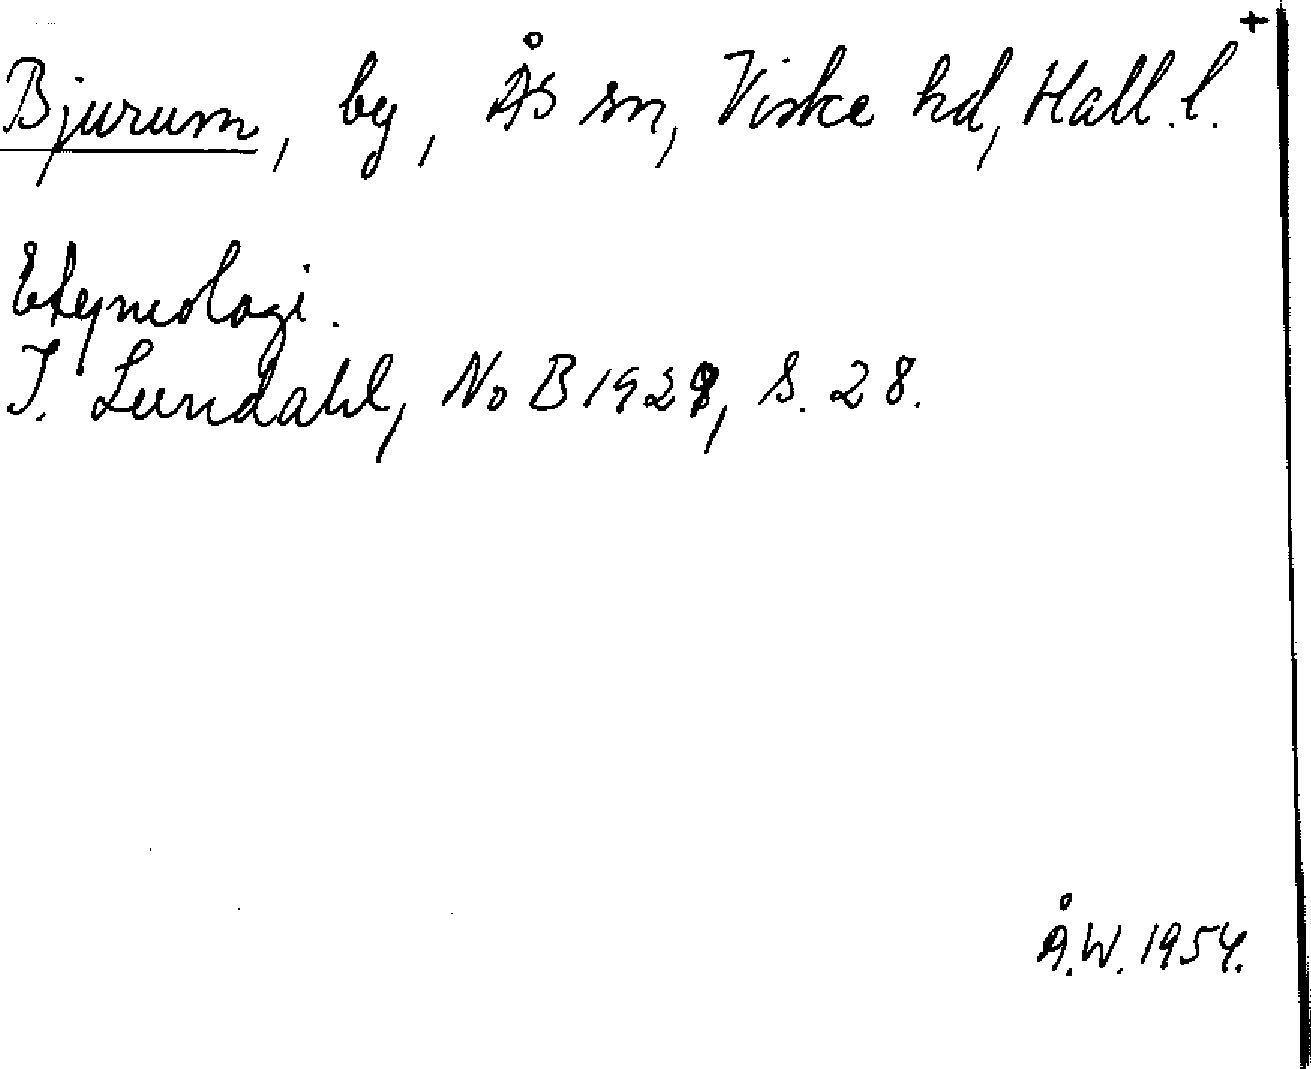 Bjurum, by, Ås sn, Viske hd, Hall. l. +
Etymologi.
I. Lundahl, NoB 1928, s. 28.
Å.W. 1954.